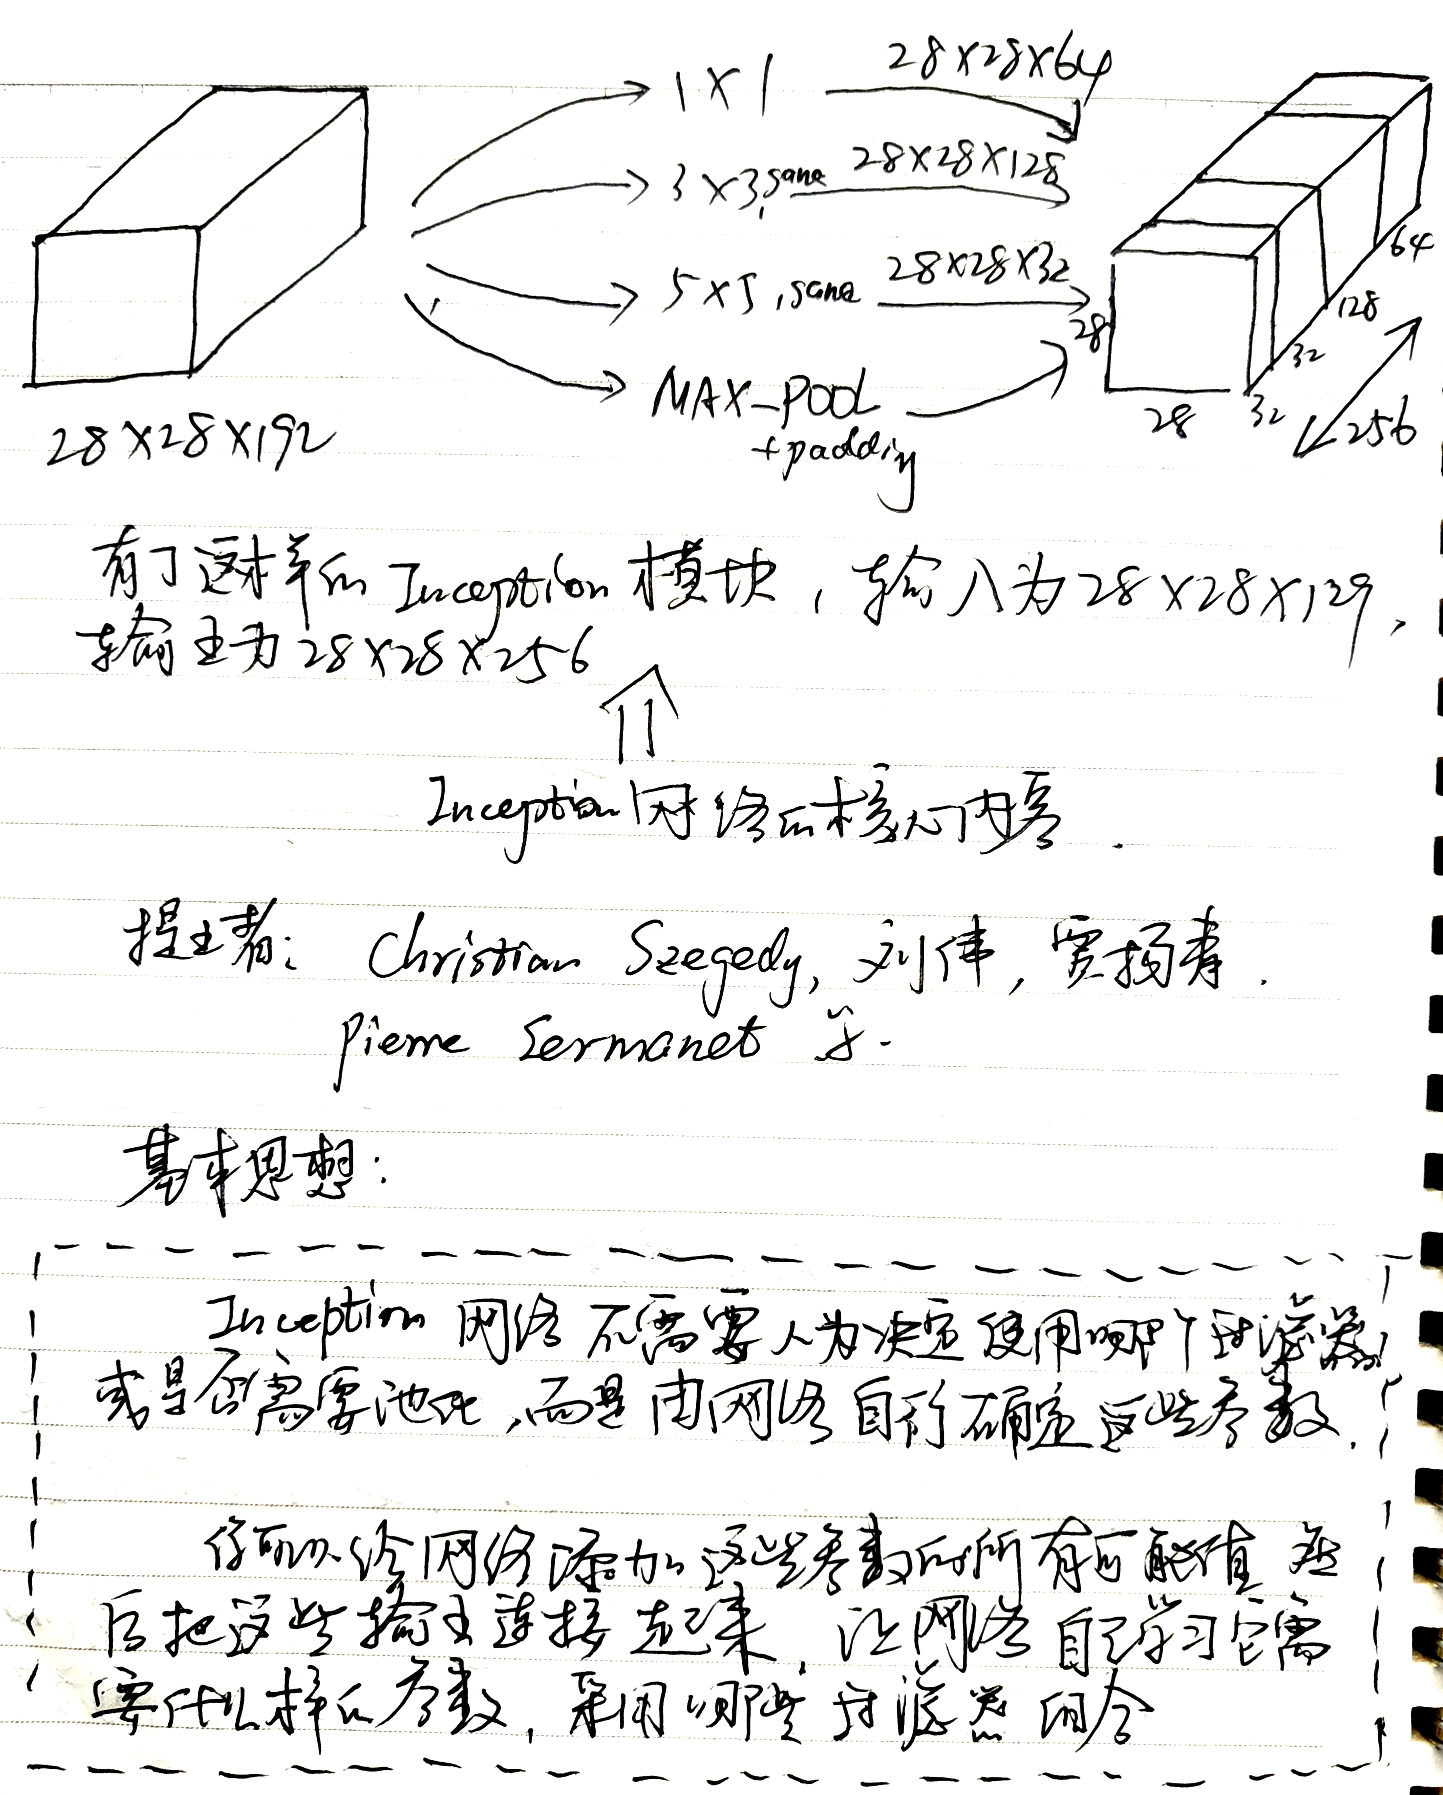 1×1 28×28×64
3×3,same 28×28×128
5×5,same 28×28×32
MAX-POOL
+padding
28×28×192
28 28 32 32 128 64
256
有了这样的Inception模块,输入为28×28×129,
输出为28×28×256
Inception网络的核心内容.
提出者: Christian Szegedy, 刘伟, 贾扬青.
Pierre Sermanet 等.
基本思想:
Inception 网络不需要人为决定使用哪个过滤器,
或是否需要池化,而是由网络自行确定这些参数.
你可以给网络添加这些参数的所有可能值 然
后把这些输出连接起来,让网络自己学习它需
要什么样的参数,采用哪些过滤器组合